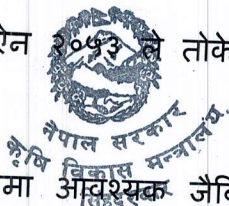 ऐन २०५३ ले तोके
नेपाल सरकार
कृषि विकास मन्त्रालय
मा आवश्यक जैवि